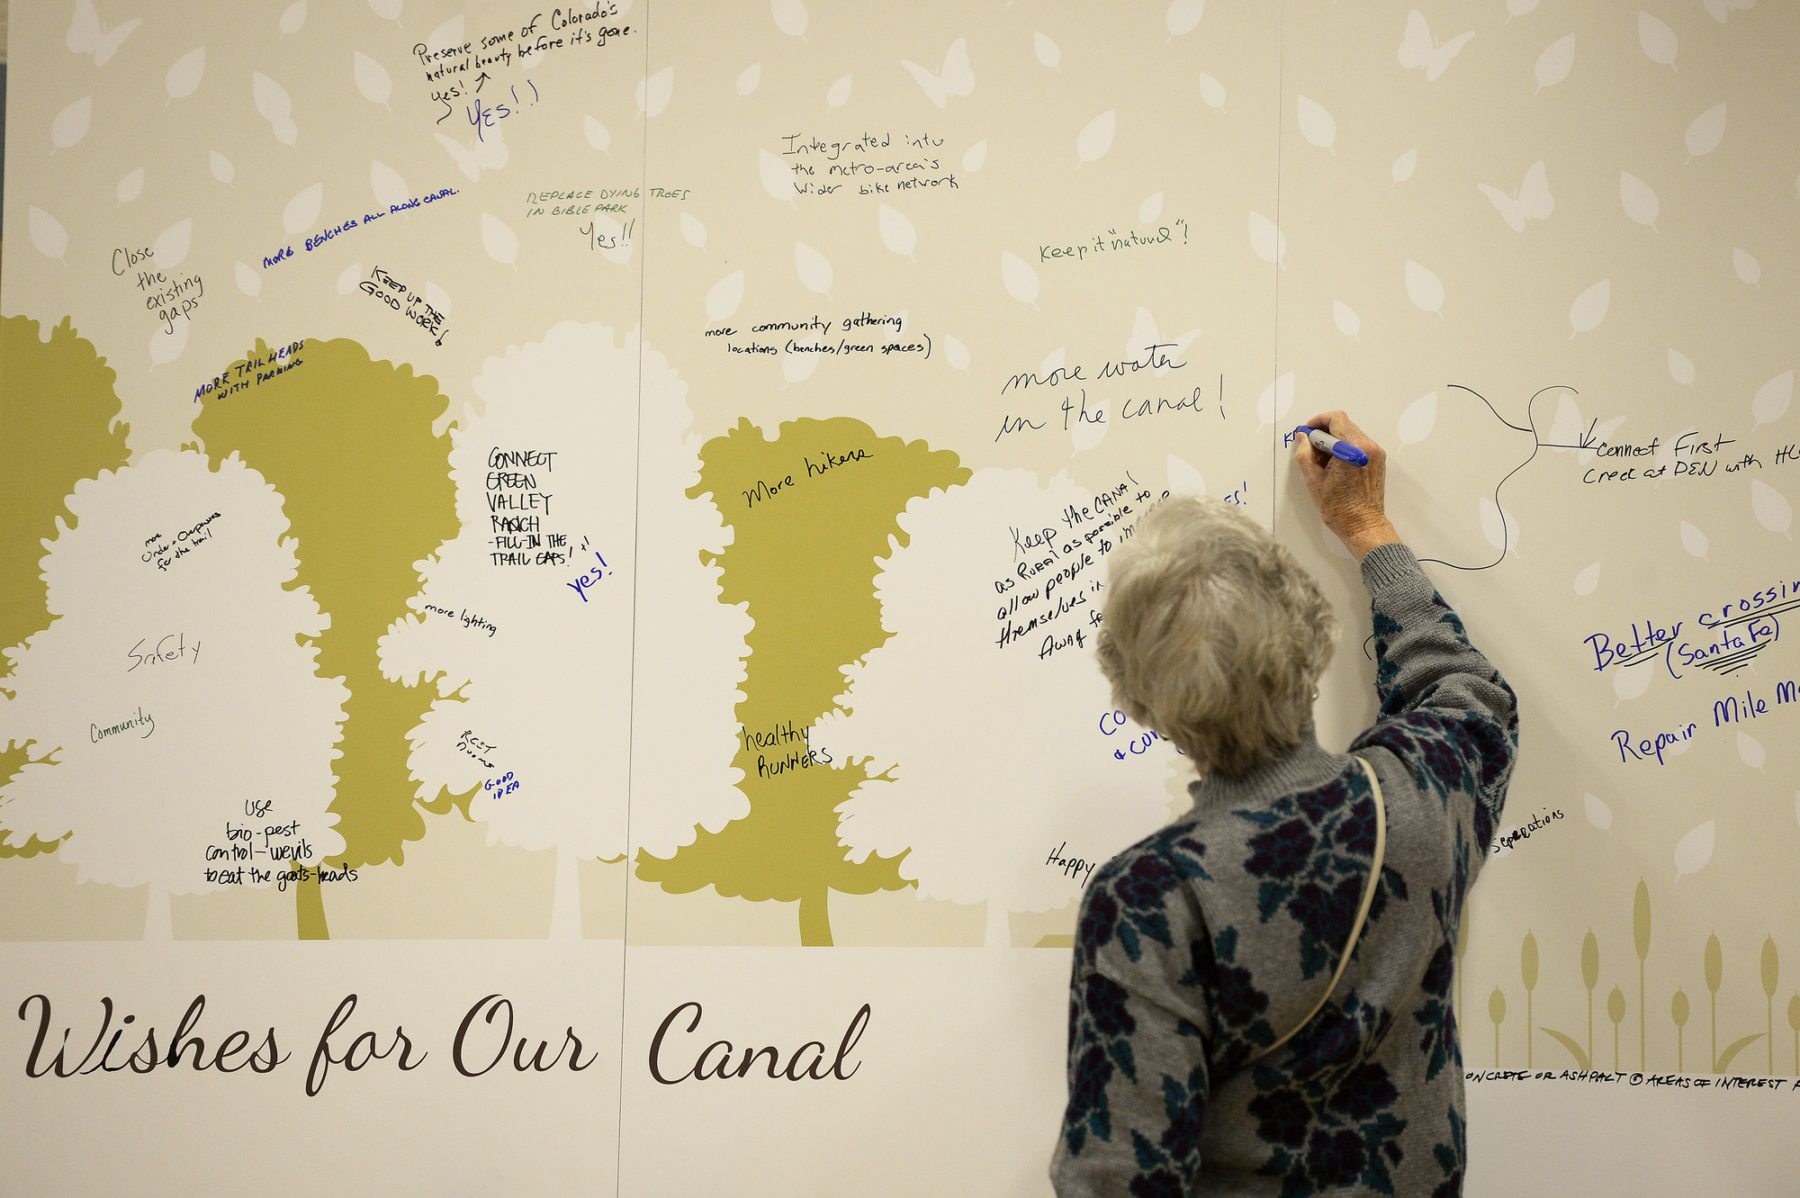 Preserve some of Colorado's
natural beauty before it's gone.
yes!
YES!!
Integrated into
the metro-area's
wider bike network
REPLACE DYING TREES
IN BIBLE PARK
Yes!!
MORE BENCHES ALL ALONG CANAL.
Close
the
existing
gaps
Keep it "natural"!
KEEP UP THE
GOOD WORK!
more community gathering
locations (benches/green spaces)
MORE TRAIL HEADS
WITH PARKING
more water
in the canal!
Connect First
Creek at DEN with
CONNECT
GREEN
VALLEY
RANCH
-FILL-IN THE
TRAIL GAPS! +1
yes!
More hikers
Keep the CANAl
as Rural as possible to
allow people to
themselves in
Away
more
Under + Overpasses
for the trail
more lighting
Safety
Better crossin
(Santa Fe)
Community
Repair Mile
healthy
RUNNERS
REST
Rooms
GOOD
IDEA
CO
USE
bio-pest
control-wevils
to eat the goats-heads
Happy
seperations
Wishes for Our Canal
ONCRETE OR ASHPALT @ AREAS OF INTEREST